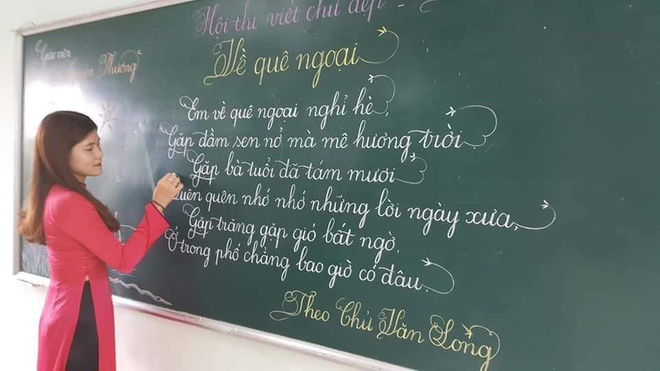 Hội thi viết chữ đẹp
Giáo viên
Thương
Về quê ngoại
Em về quê ngoại nghỉ hè,
Gặp đầm sen nở mà mê hương trời
Gặp bà tuổi đã tám mươi
quên nhớ nhớ những lời ngày xưa,
Gặp trăng gặp gió bất ngờ,
Ở trong phố chẳng bao giờ có đâu.
Theo Chử Văn Long